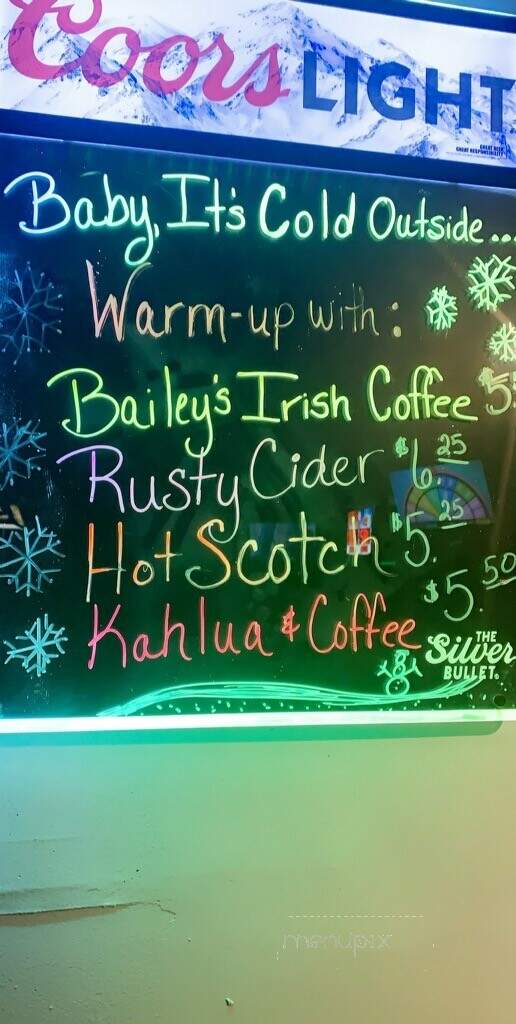 Coors LIGHT
GREAT BEER
GREAT RESPONSIBILITY
Baby, It's Cold Outside...
Warm-up with:
Bailey's Irish Coffee $5
Rusty Cider $6.25
Hot Scotch $5.25
Kahlua & Coffee $5.50
THE
Silver
BULLET.
menupix